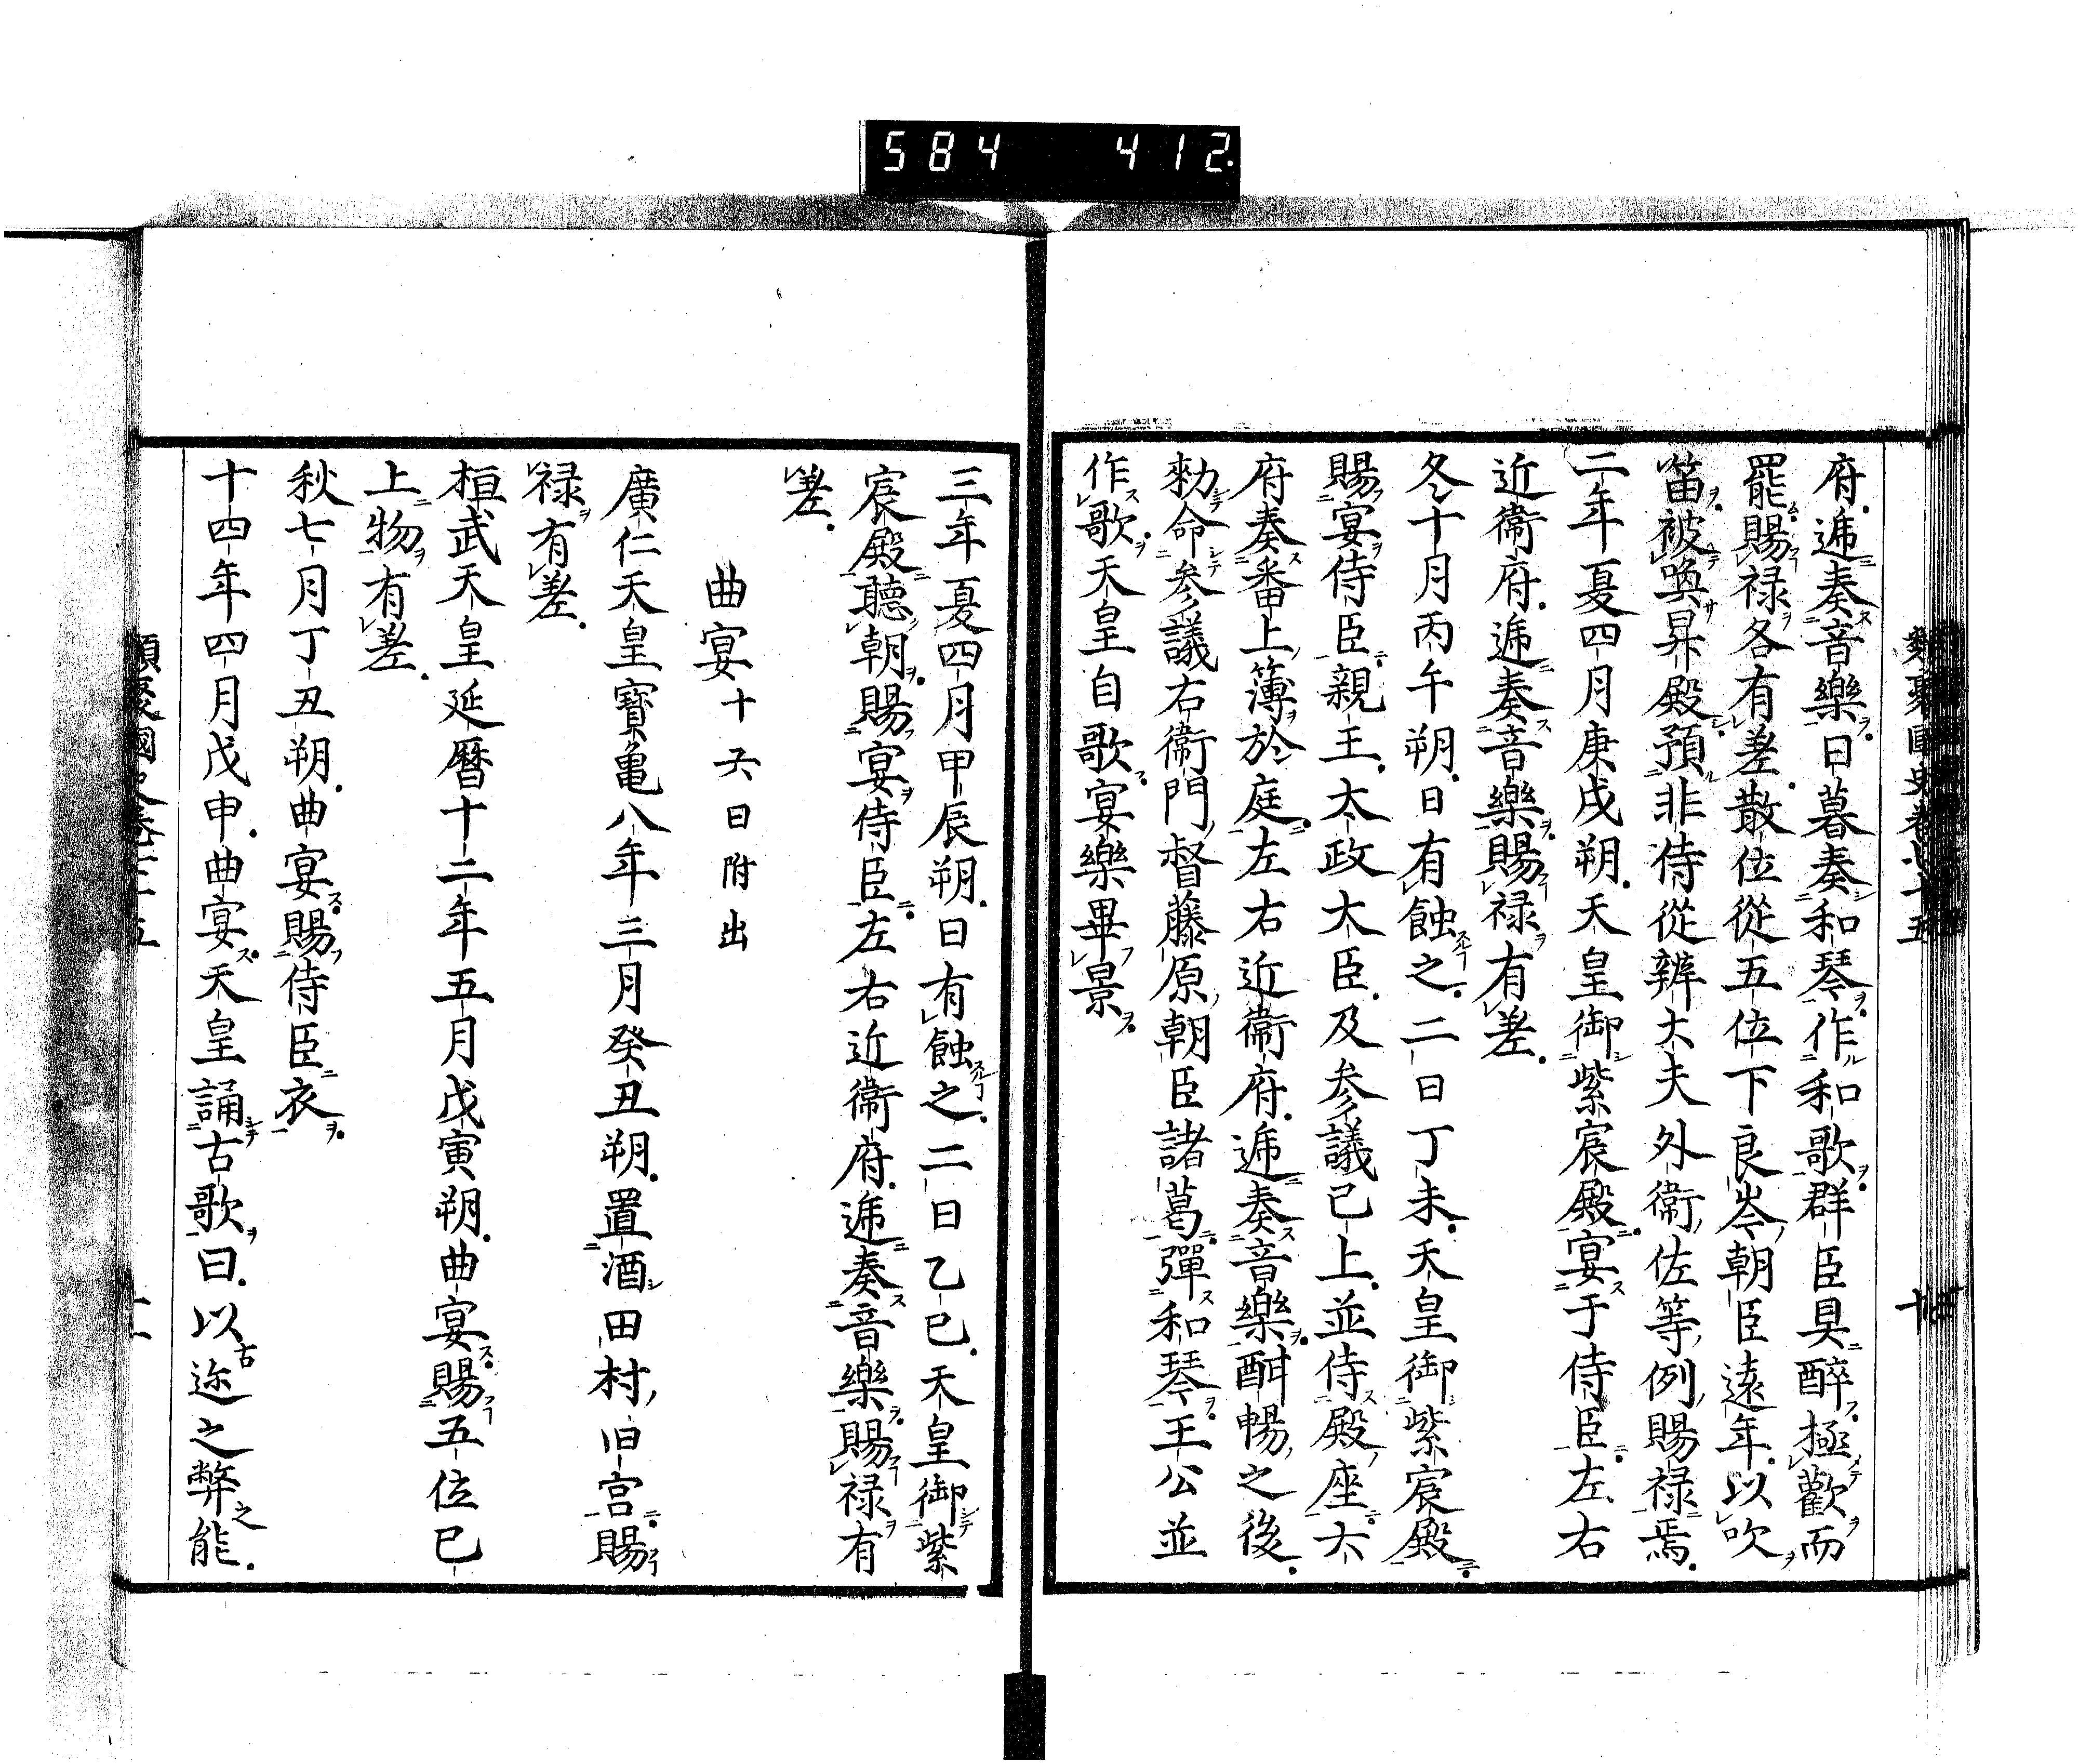 584 412
類聚國史卷七十五 十
府遞奏音樂日暮奏和琴作和歌群臣具醉極歡而
罷賜禄各有差散位從五位下良岑朝臣遠年以吹
笛被喚昇殿預非侍從辨大夫外衛佐等例賜禄焉
二年夏四月庚戌朔天皇御紫宸殿宴于侍臣左右
近衛府遞奏音樂賜禄有差
冬十月丙午朔日有蝕之二日丁未天皇御紫宸殿
賜宴侍臣親王太政大臣及参議已上並侍殿座六
府奏番上簿於庭左右近衛府遞奏音樂酣暢之後
勅命参議右衛門督藤原朝臣諸葛彈和琴王公並
作歌天皇自歌宴樂畢景
三年夏四月甲辰朔日有蝕之二日乙巳天皇御紫
宸殿聽朝賜宴侍臣左右近衛府遞奏音樂賜禄有
差
曲宴十六日附出
廣仁天皇寳亀八年三月癸丑朔置酒田村旧宮賜
禄有差
桓武天皇延曆十二年五月戊寅朔曲宴賜五位已
上物有差
秋七月丁丑朔曲宴賜侍臣衣
十四年四月戊申曲宴天皇誦古歌曰以古迩之弊之能
類聚國史卷七十五